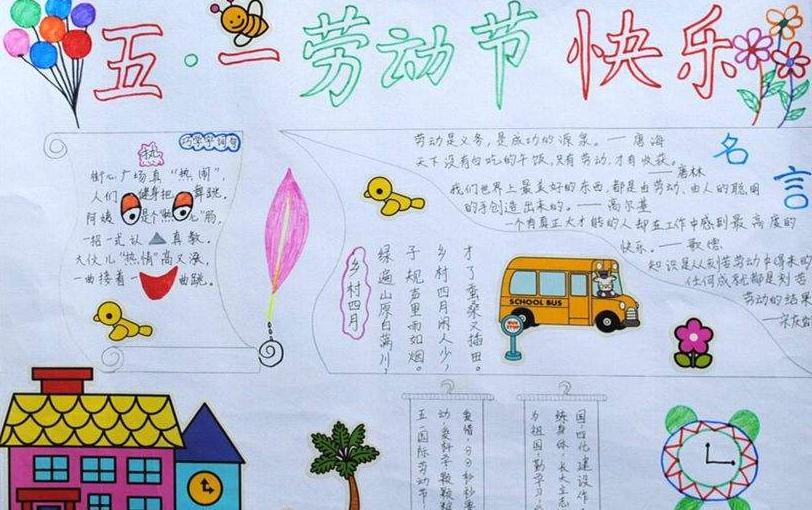 五·一劳动节快乐
巧学字词句
热
街心广场真“热闹”，
人们 健身把 舞跳。
阿姨 是个“热心”肠，
一招一式认 真教。
大伙儿“热情”高又涨，
一曲接着一 曲跳。
名言
劳动是义务，是成功的源泉。——唐海
天下没有白吃的干饭，只有劳动，才有收获。
——唐林
我们世界上最美好的东西，都是由劳动、由人的聪明
的手创造出来的。——高尔基
一个有真正大才能的人却在工作中感到最高度的
快乐。——歌德
知识是从刻苦劳动中得来的
任何成就都是刻苦
劳动的结果
——宋庆龄
乡村四月
绿遍山原白满川，
子规声里雨如烟。
乡村四月闲人少，
才了蚕桑又插田。
SCHOOL BUS
BUS STOP
爱惜，分分秒秒要
动，爱科学
五一国际劳动节
国，四化建设作
练身体，长大立志
为祖国，勤学习